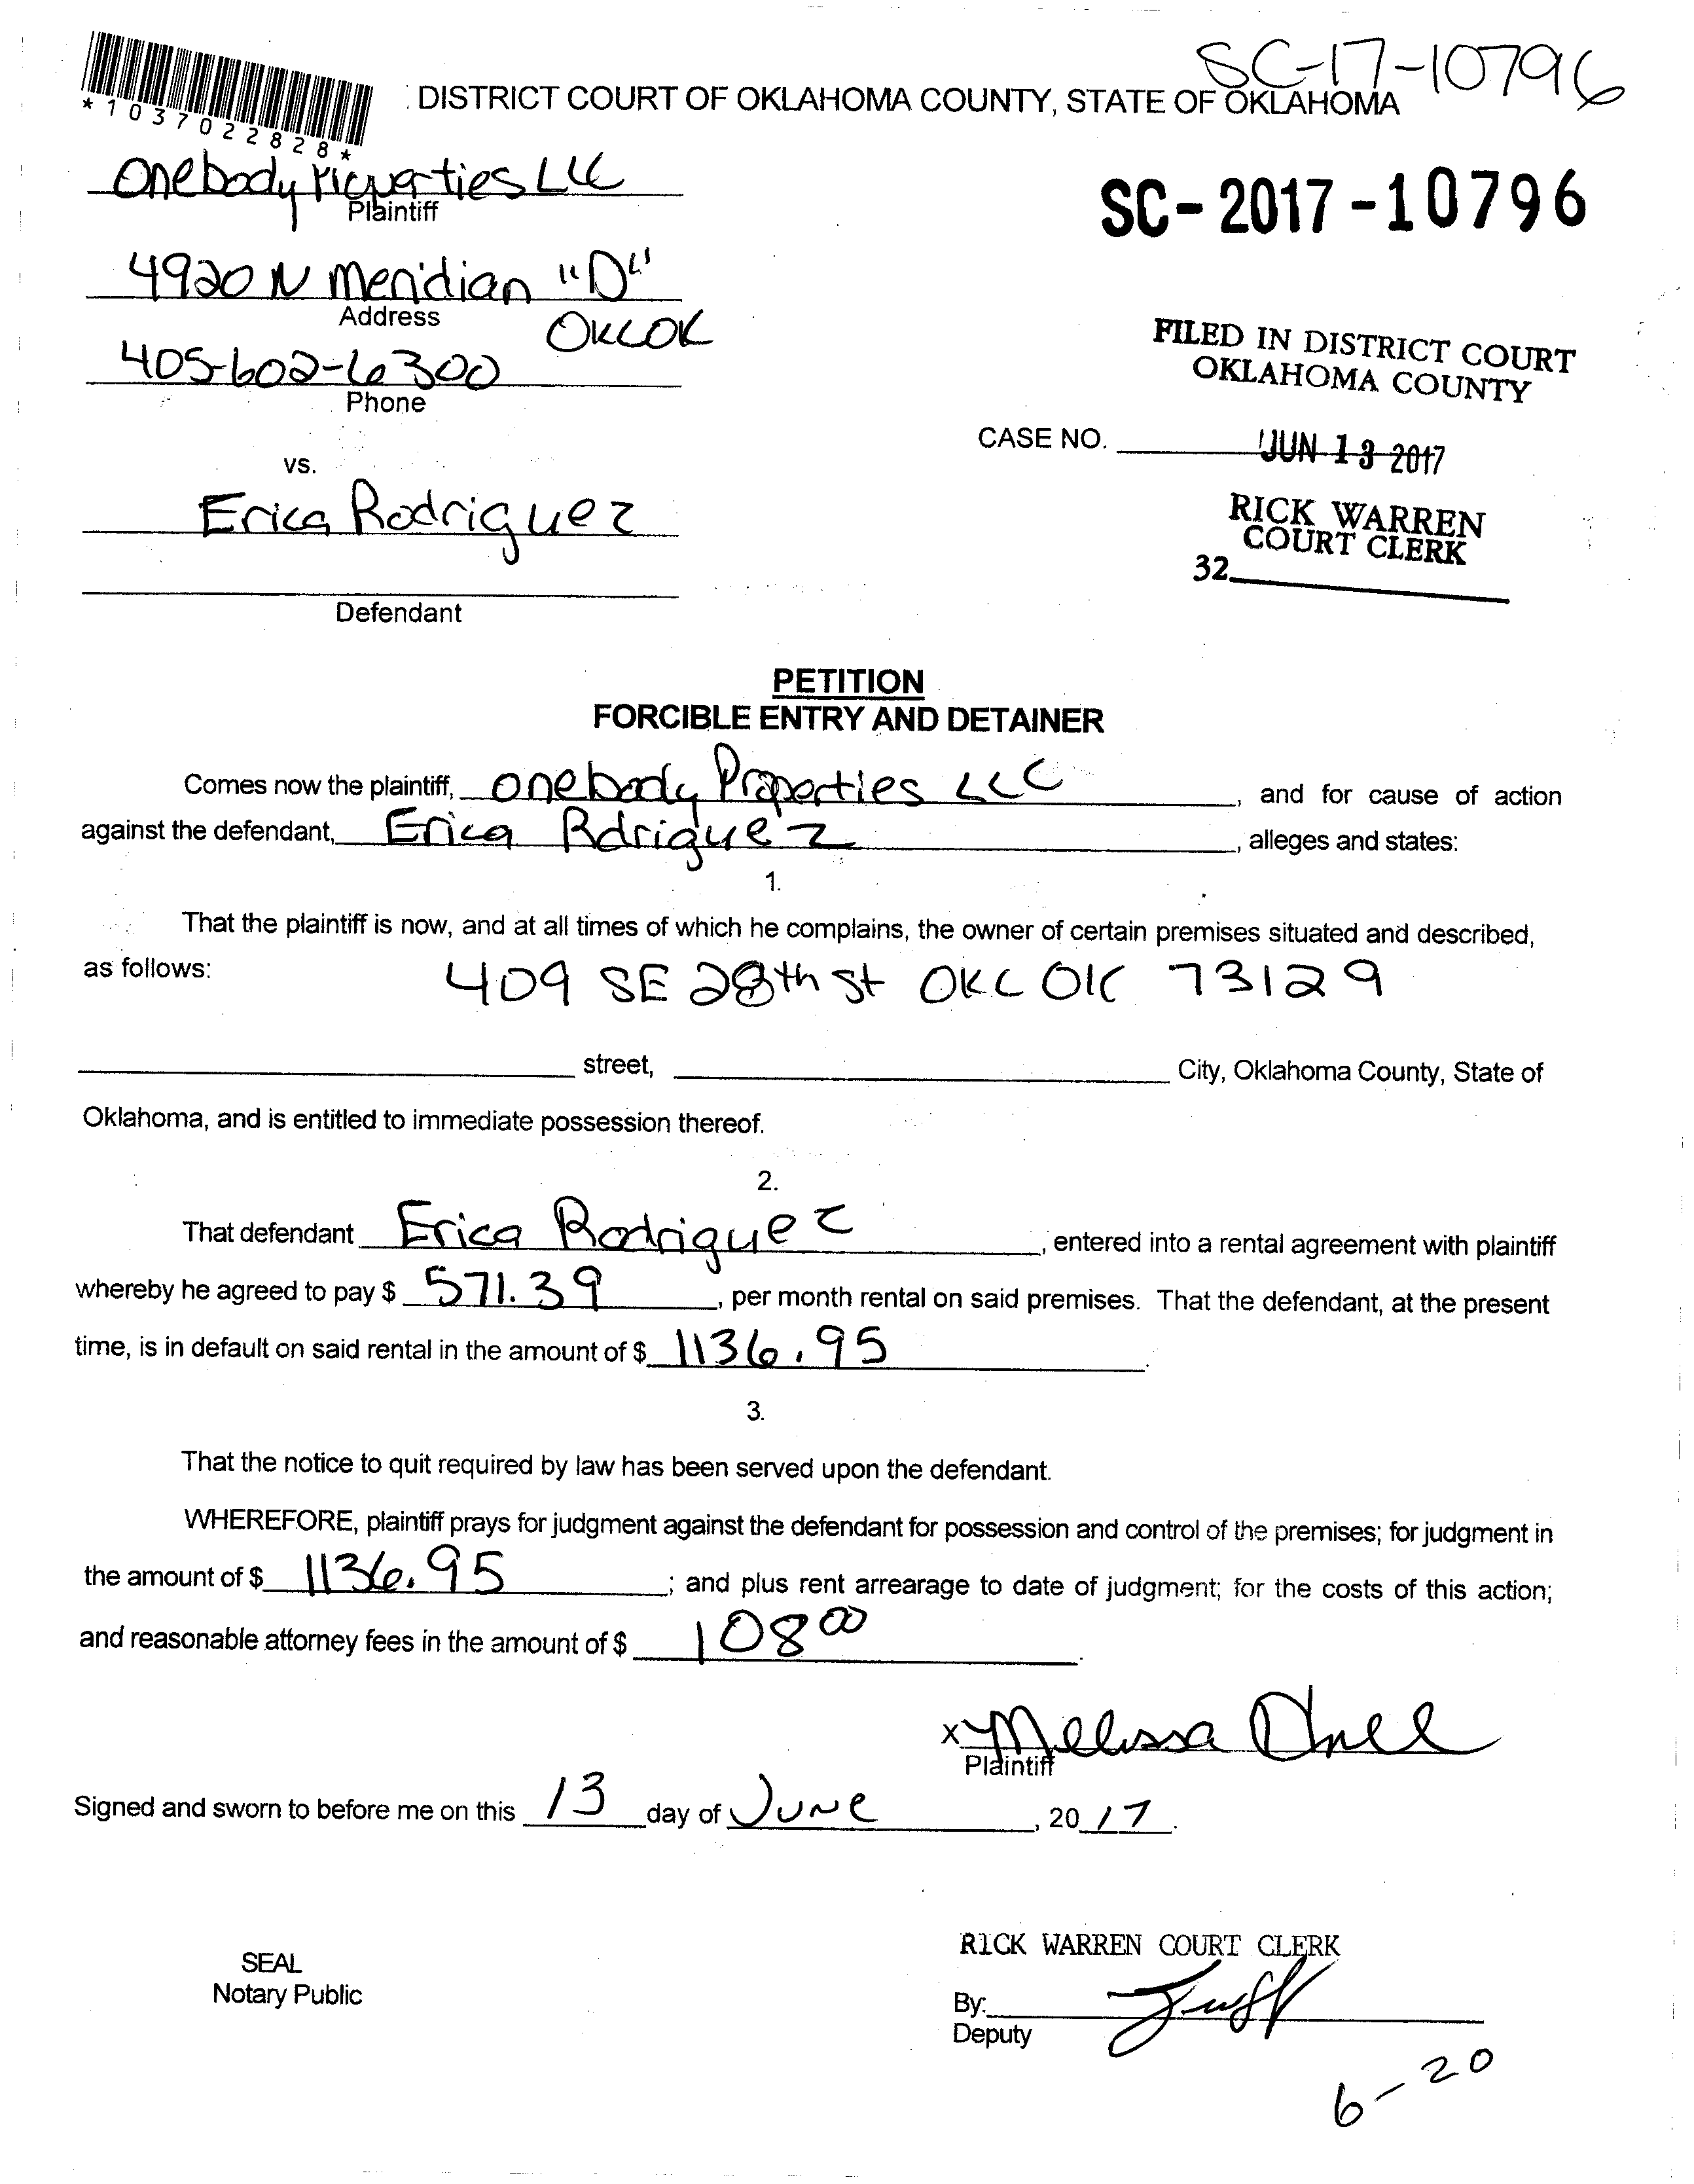 SC-17-10796
*1037022828*
DISTRICT COURT OF OKLAHOMA COUNTY, STATE OF OKLAHOMA
Onebody Properties LLC
Plaintiff
SC-2017-10796
4920 N Meridian "D"
Address
OKC OK
405-602-6300
Phone
FILED IN DISTRICT COURT
OKLAHOMA COUNTY
CASE NO.
JUN 13 2017
vs.
Erica Rodriguez
RICK WARREN
COURT CLERK
32
Defendant
PETITION
FORCIBLE ENTRY AND DETAINER
Comes now the plaintiff, onebody Properties LLC, and for cause of action
against the defendant, Erica Rdriguez, alleges and states:
1.
That the plaintiff is now, and at all times of which he complains, the owner of certain premises situated and described,
as follows: 409 SE 28th st OKC OK 73129
street, City, Oklahoma County, State of
Oklahoma, and is entitled to immediate possession thereof.
2.
That defendant Erica Rodriguez, entered into a rental agreement with plaintiff
whereby he agreed to pay $ 571.39, per month rental on said premises. That the defendant, at the present
time, is in default on said rental in the amount of $ 1136.95.
3.
That the notice to quit required by law has been served upon the defendant.
WHEREFORE, plaintiff prays for judgment against the defendant for possession and control of the premises; for judgment in
the amount of $ 1136.95; and plus rent arrearage to date of judgment; for the costs of this action;
and reasonable attorney fees in the amount of $ 108 00.
x Melissa
Plaintiff
Signed and sworn to before me on this 13 day of June, 20 17.
RICK WARREN COURT CLERK
SEAL
Notary Public
By:
Deputy
6-20